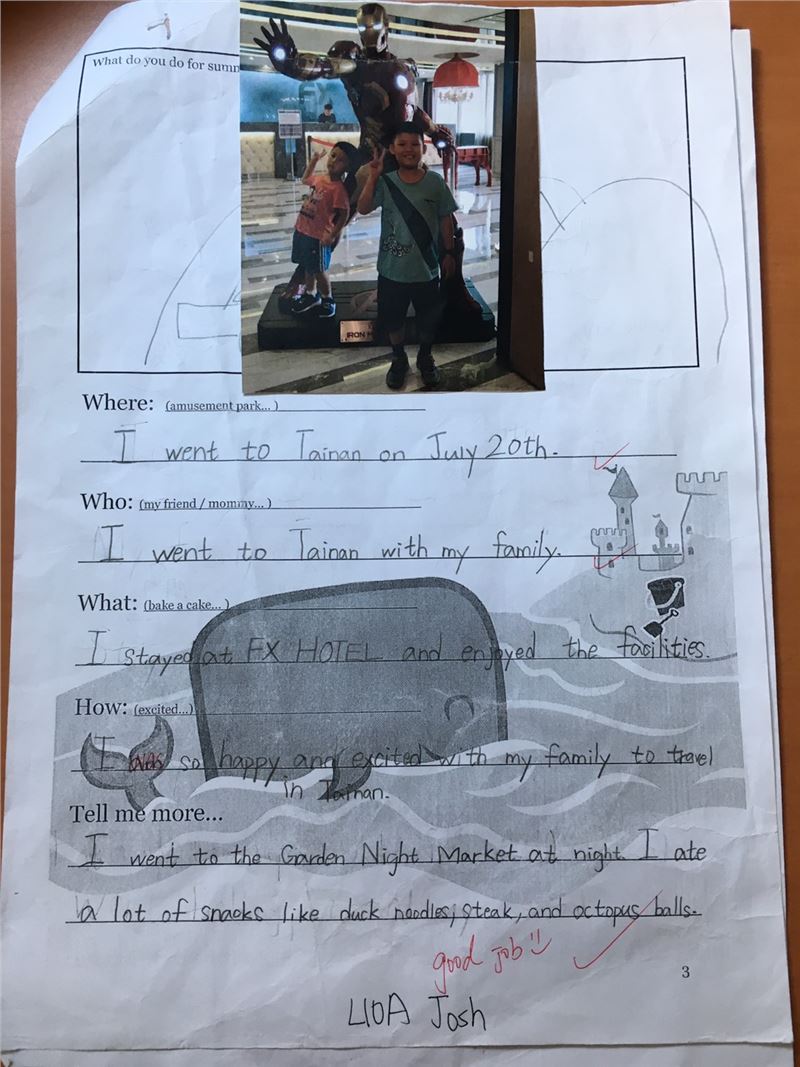 What do you do for summ
IRON M
Where: (amusement park... )
I went to Tainan on July 20th.
Who: (my friend / mommy... )
I went to Tainan with my family.
What: (bake a cake... )
I stayed at FX HOTEL and enjoyed the facilities.
How: (excited...)
I was so happy and excited with my family to travel
in Tainan.
Tell me more...
I went to the Garden Night Market at night. I ate
a lot of snacks like duck noodles, steak, and octopus balls.
good job
3
L10A Josh